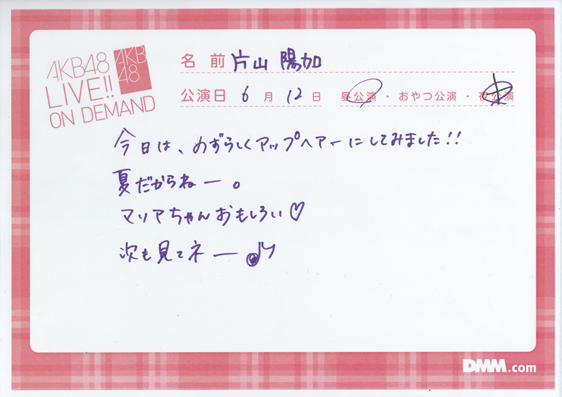 AKB48
LIVE!!
ON DEMAND
AKB
48
名 前 片山 陽加
公演日 6 月 12 日 昼公演・おやつ公演・夜公演
今日は、めずらしくアップヘアーにしてみました!!
夏だからねー。
マリアちゃんおもしろい♡
次も見てネー♪
DMM.com